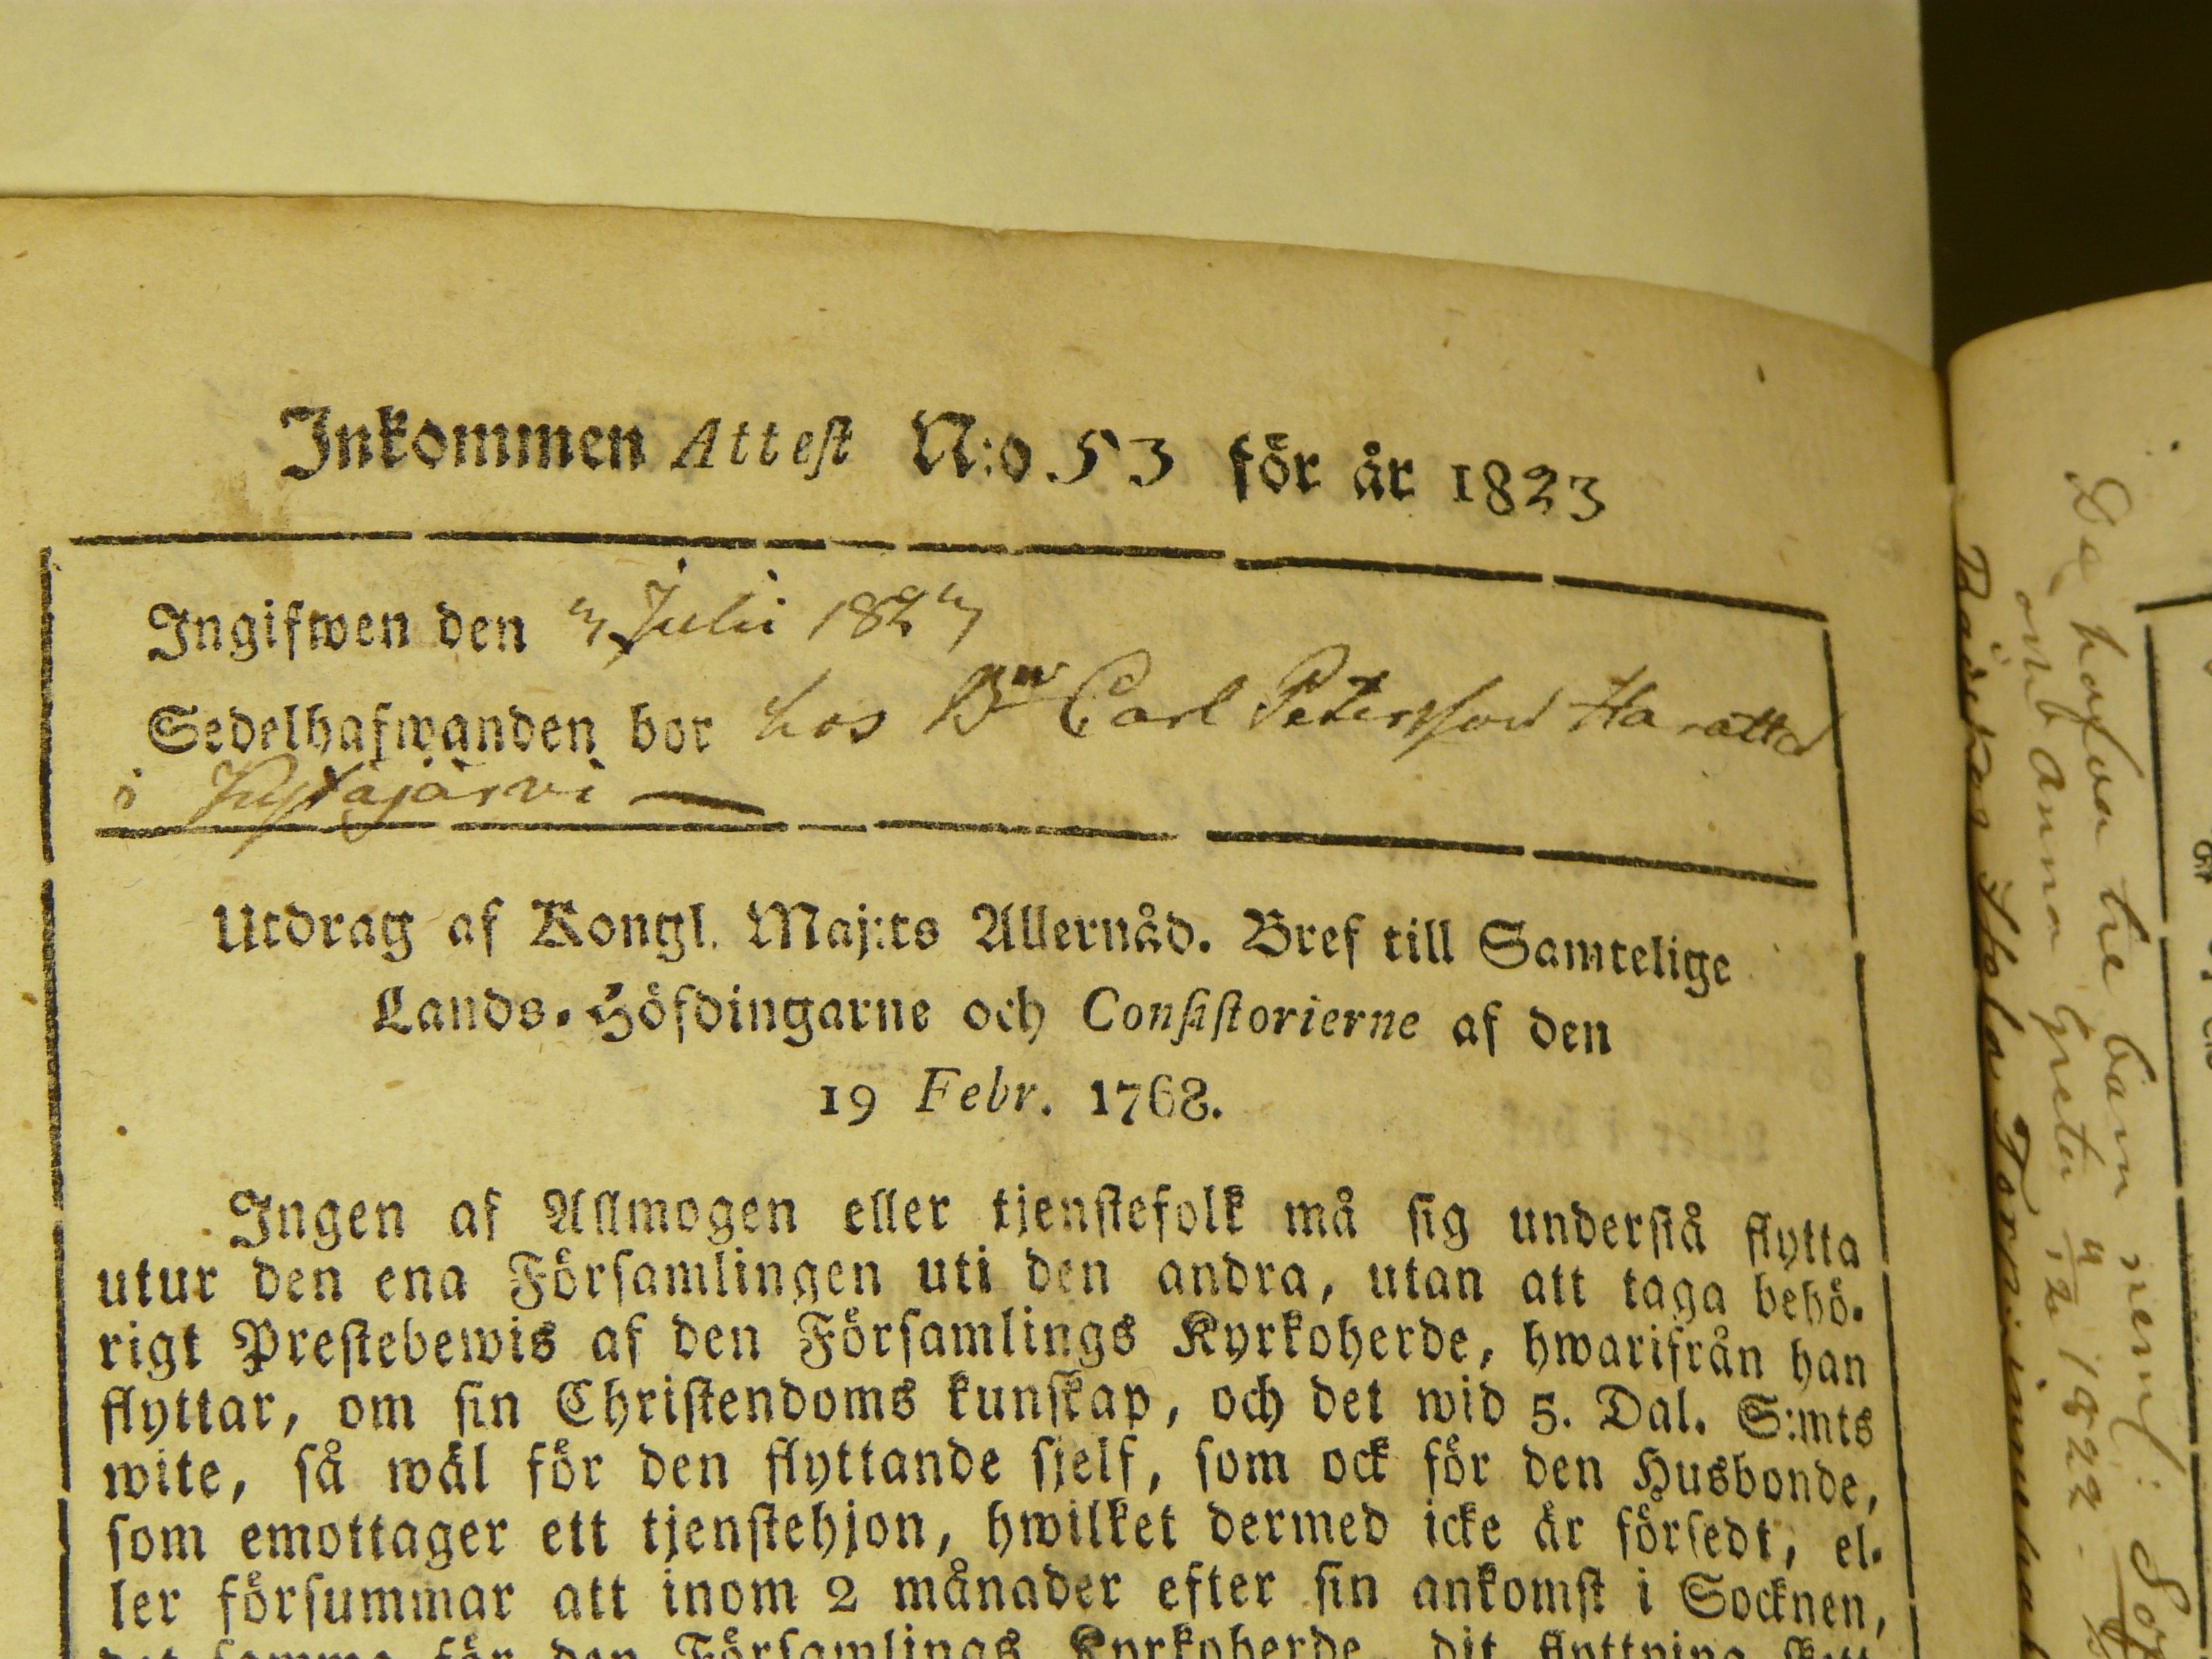 Inkommen Attest N:o 53 för år 1823
Ingifwen den 3 Julii 1823
Sedelhafwanden bor hos Bn Carl Petersson Haratta
i Kytäjärvi
Utdrag af Kongl. Maj:ts Allernåd. Bref till Samtelige
Lands-Höfdingarne och Consistorierne af den
19 Febr. 1768.
Ingen af Allmogen eller tjenstefolk må sig understå flytta
utur den ena Församlingen uti den andra, utan att taga behö-
rigt Prestebewis af den Församlings Kyrkoherde, hwarifrån han
flyttar, om sin Christendoms kunskap, och det wid 5. Dal. S:mts
wite, så wäl för den flyttande sjelf, som ock för den Husbonde,
som emottager ett tjenstehjon, hwilket dermed icke är försedt, el-
ler försummar att inom 2 månader efter sin ankomst i Socknen,
det samma för den Församlings Kyrkoherde, dit flyttning skett
De hafva tre barn neml:
barn Anna Greta 4/12 1822.